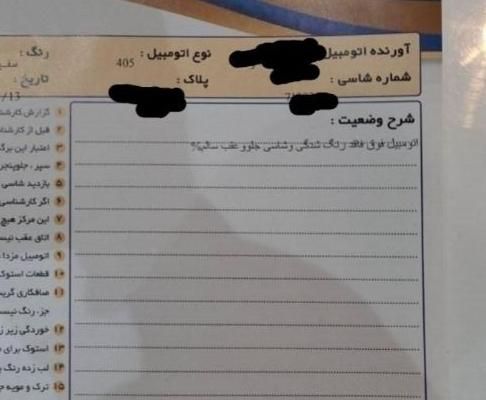 آورنده اتومبیل
نوع اتومبیل : 405
رنگ :
شماره شاسی :
پلاک :
تاریخ :
13/
شرح وضعیت :
اتومبیل فوق فاقد رنگ شدگی وشاسی جلوو عقب سالم%
۱ گزارش کارشنا
۲ قبل از کارشنا
۳ اعتبار این برگ
۴ سپر ، جلوپنجر
۵ بازدید شاسی
۶ اگر کارشناسی
۷ این مرکز هیچ
۸ اتاق عقب نیس
۹ اتومبیل مزدا
۱۰ قطعات استوک
۱۱ صافکاری گریس
جزء رنگ نیست
۱۲ خوردگی زیر ز
۱۳ استوک برای
۱۴ لب زده رنگ
۱۵ ترک و مویه ج